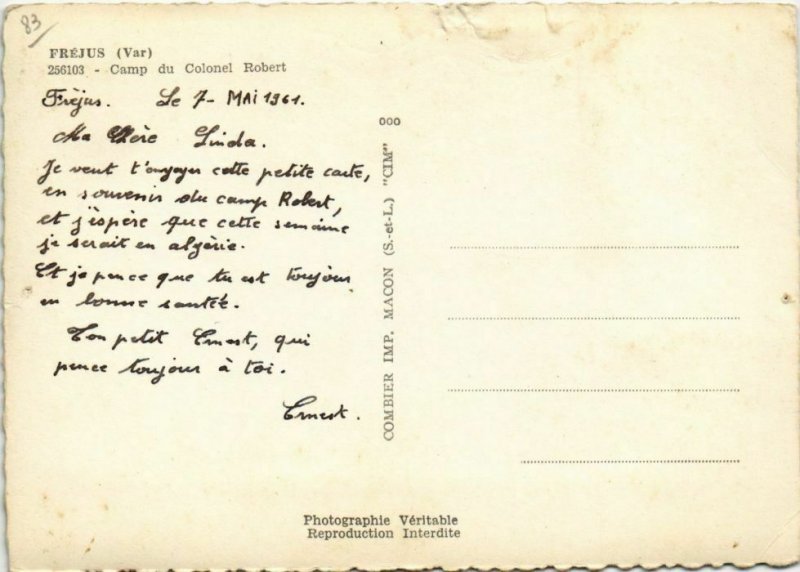 83
FRÉJUS (Var)
256103 - Camp du Colonel Robert
Fréjus. Le 7- MAi 1961.
Ma Chère Linda.
Je veut t'envoyer cette petite carte,
en souvenir du camp Robert,
et j'éspère que cette semaine
je serait en algérie.
Et je pence que tu est toujour
en bonne santée.
Ton petit Ernest, qui
pence toujour à toi.
Ernest.
000
COMBIER IMP. MACON (S.-et-L.) "CIM"
Photographie Véritable
Reproduction Interdite